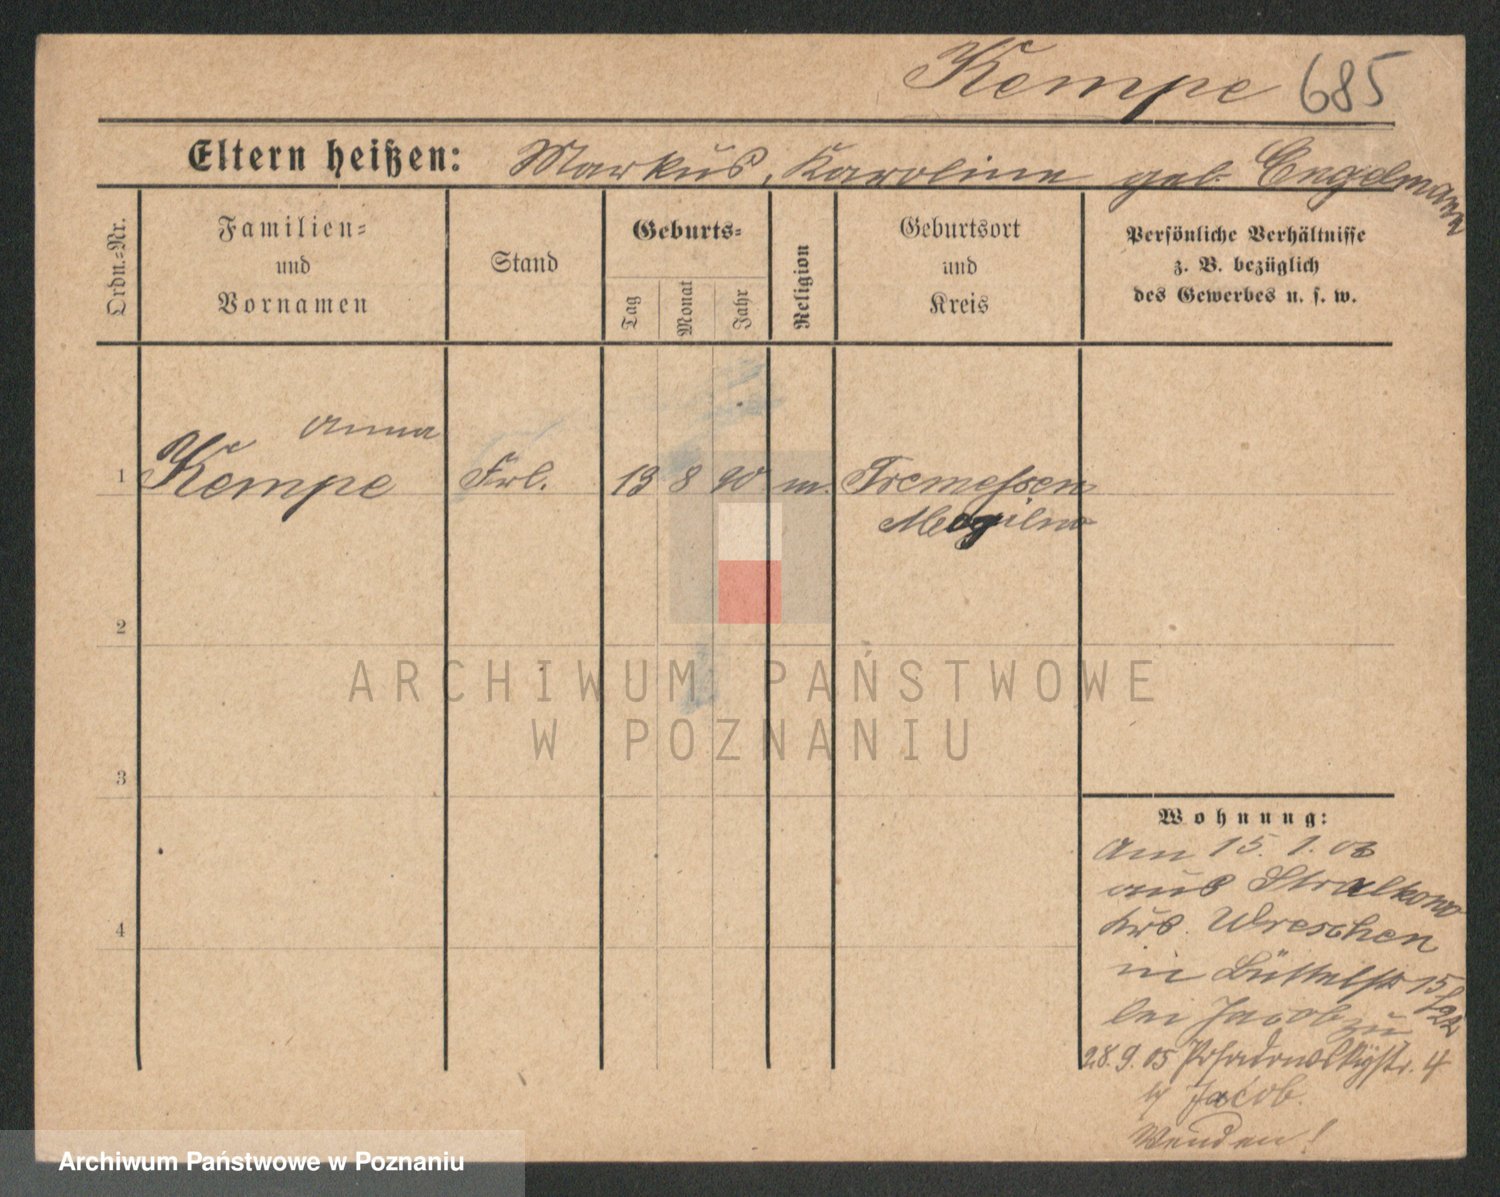 Kempe 685
Eltern heißen: Markus, Karoline geb. Engelmann
Ordn.=Nr.
Familien=
und
Vornamen
Stand
Geburts=
Tag
Monat
Jahr
Religion
Geburtsort
und
Kreis
Persönliche Verhältnisse
z. B. bezüglich
des Gewerbes u. s. w.
Anna
1 Kempe Frl. 13 8 90 m. Tremessen
Mogilno
2
3
4
ARCHIWUM PAŃSTWOWE
W POZNANIU
Wohnung:
Am 15. 1. 03
aus Stralkowo
Krs. Wreschen
in Büttelstr 15
bei Jacob zu
28.9.05 Posadowskystr. 4
b/ Jacob.
Wenden!
Archiwum Państwowe w Poznaniu